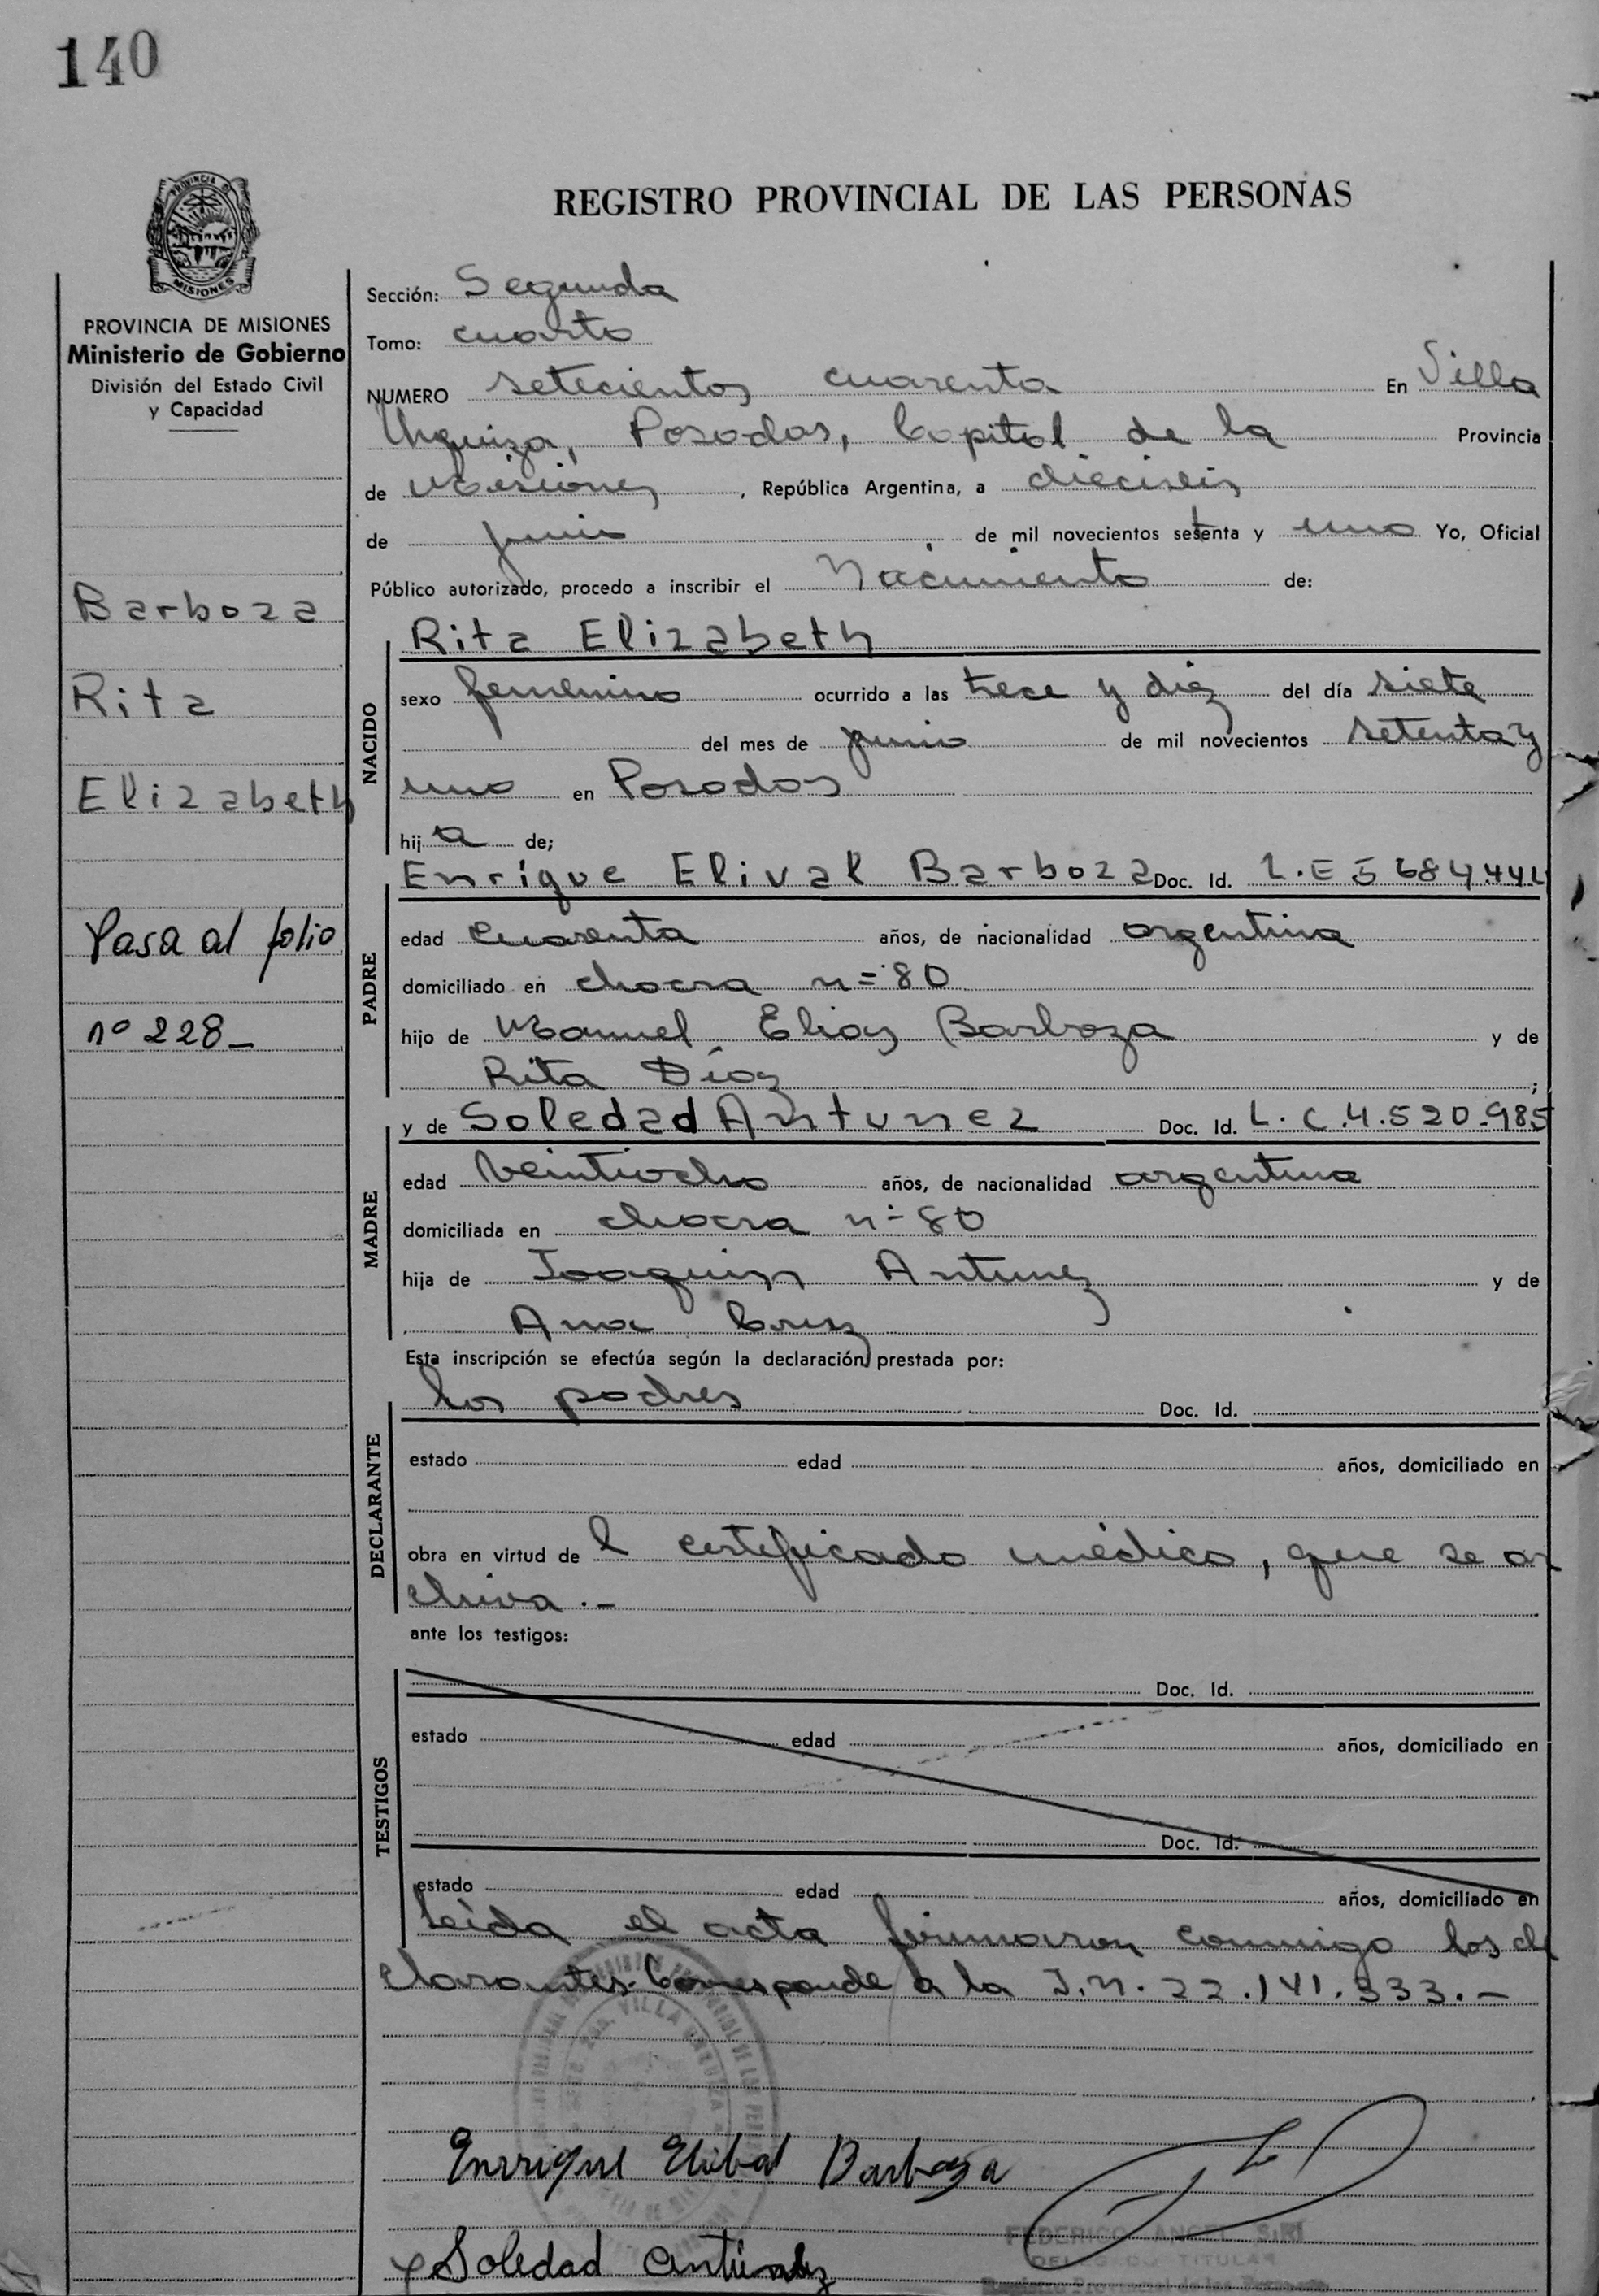 140
REGISTRO PROVINCIAL DE LAS PERSONAS
MISIONES
PROVINCIA DE MISIONES
Ministerio de Gobierno
División del Estado Civil
y Capacidad
Barboza
Rita
Elizabeth
Pasa al folio
nº 228_
Sección: Segunda
Tomo: cuarto
NUMERO setecientos cuarenta En Villa
Urquiza, Posadas, Capital de la Provincia
de Misiones, República Argentina, a dieciseis
de junio de mil novecientos setenta y uno Yo, Oficial
Público autorizado, procedo a inscribir el Nacimiento de:
Rita Elizabeth
NACIDO
sexo femenino ocurrido a las trece y diez del día siete
del mes de junio de mil novecientos setenta y
uno en Posadas
hija de;
Enrique Elival Barboza Doc. Id. L.E 5684442
PADRE
edad cuarenta años, de nacionalidad argentina
domiciliado en chacra n= 80
hijo de Manuel Elias Barboza y de
Rita Díaz;
y de Soledad Antunez Doc. Id. L.C.4.520.985
MADRE
edad veintiocho años, de nacionalidad argentina
domiciliada en chacra n- 80
hija de Joaquin Antunez y de
Ana Cruz
Esta inscripción se efectúa según la declaración prestada por:
los padres Doc. Id.
DECLARANTE
estado edad años, domiciliado en
obra en virtud de l certificado médico, que se ar
chiva.-
ante los testigos:
Doc. Id.
TESTIGOS
estado edad años, domiciliado en
Doc. Id.
estado edad años, domiciliado en
Leida el acta firmaron conmigo los de
clarantes. Corresponde a la I.N. 22.141.333.-
VILLA URQUIZA
Enrrique Elibal Barboza
Soledad Antunez
FEDERICO ANGEL SIRI
DELEGADO TITULAR